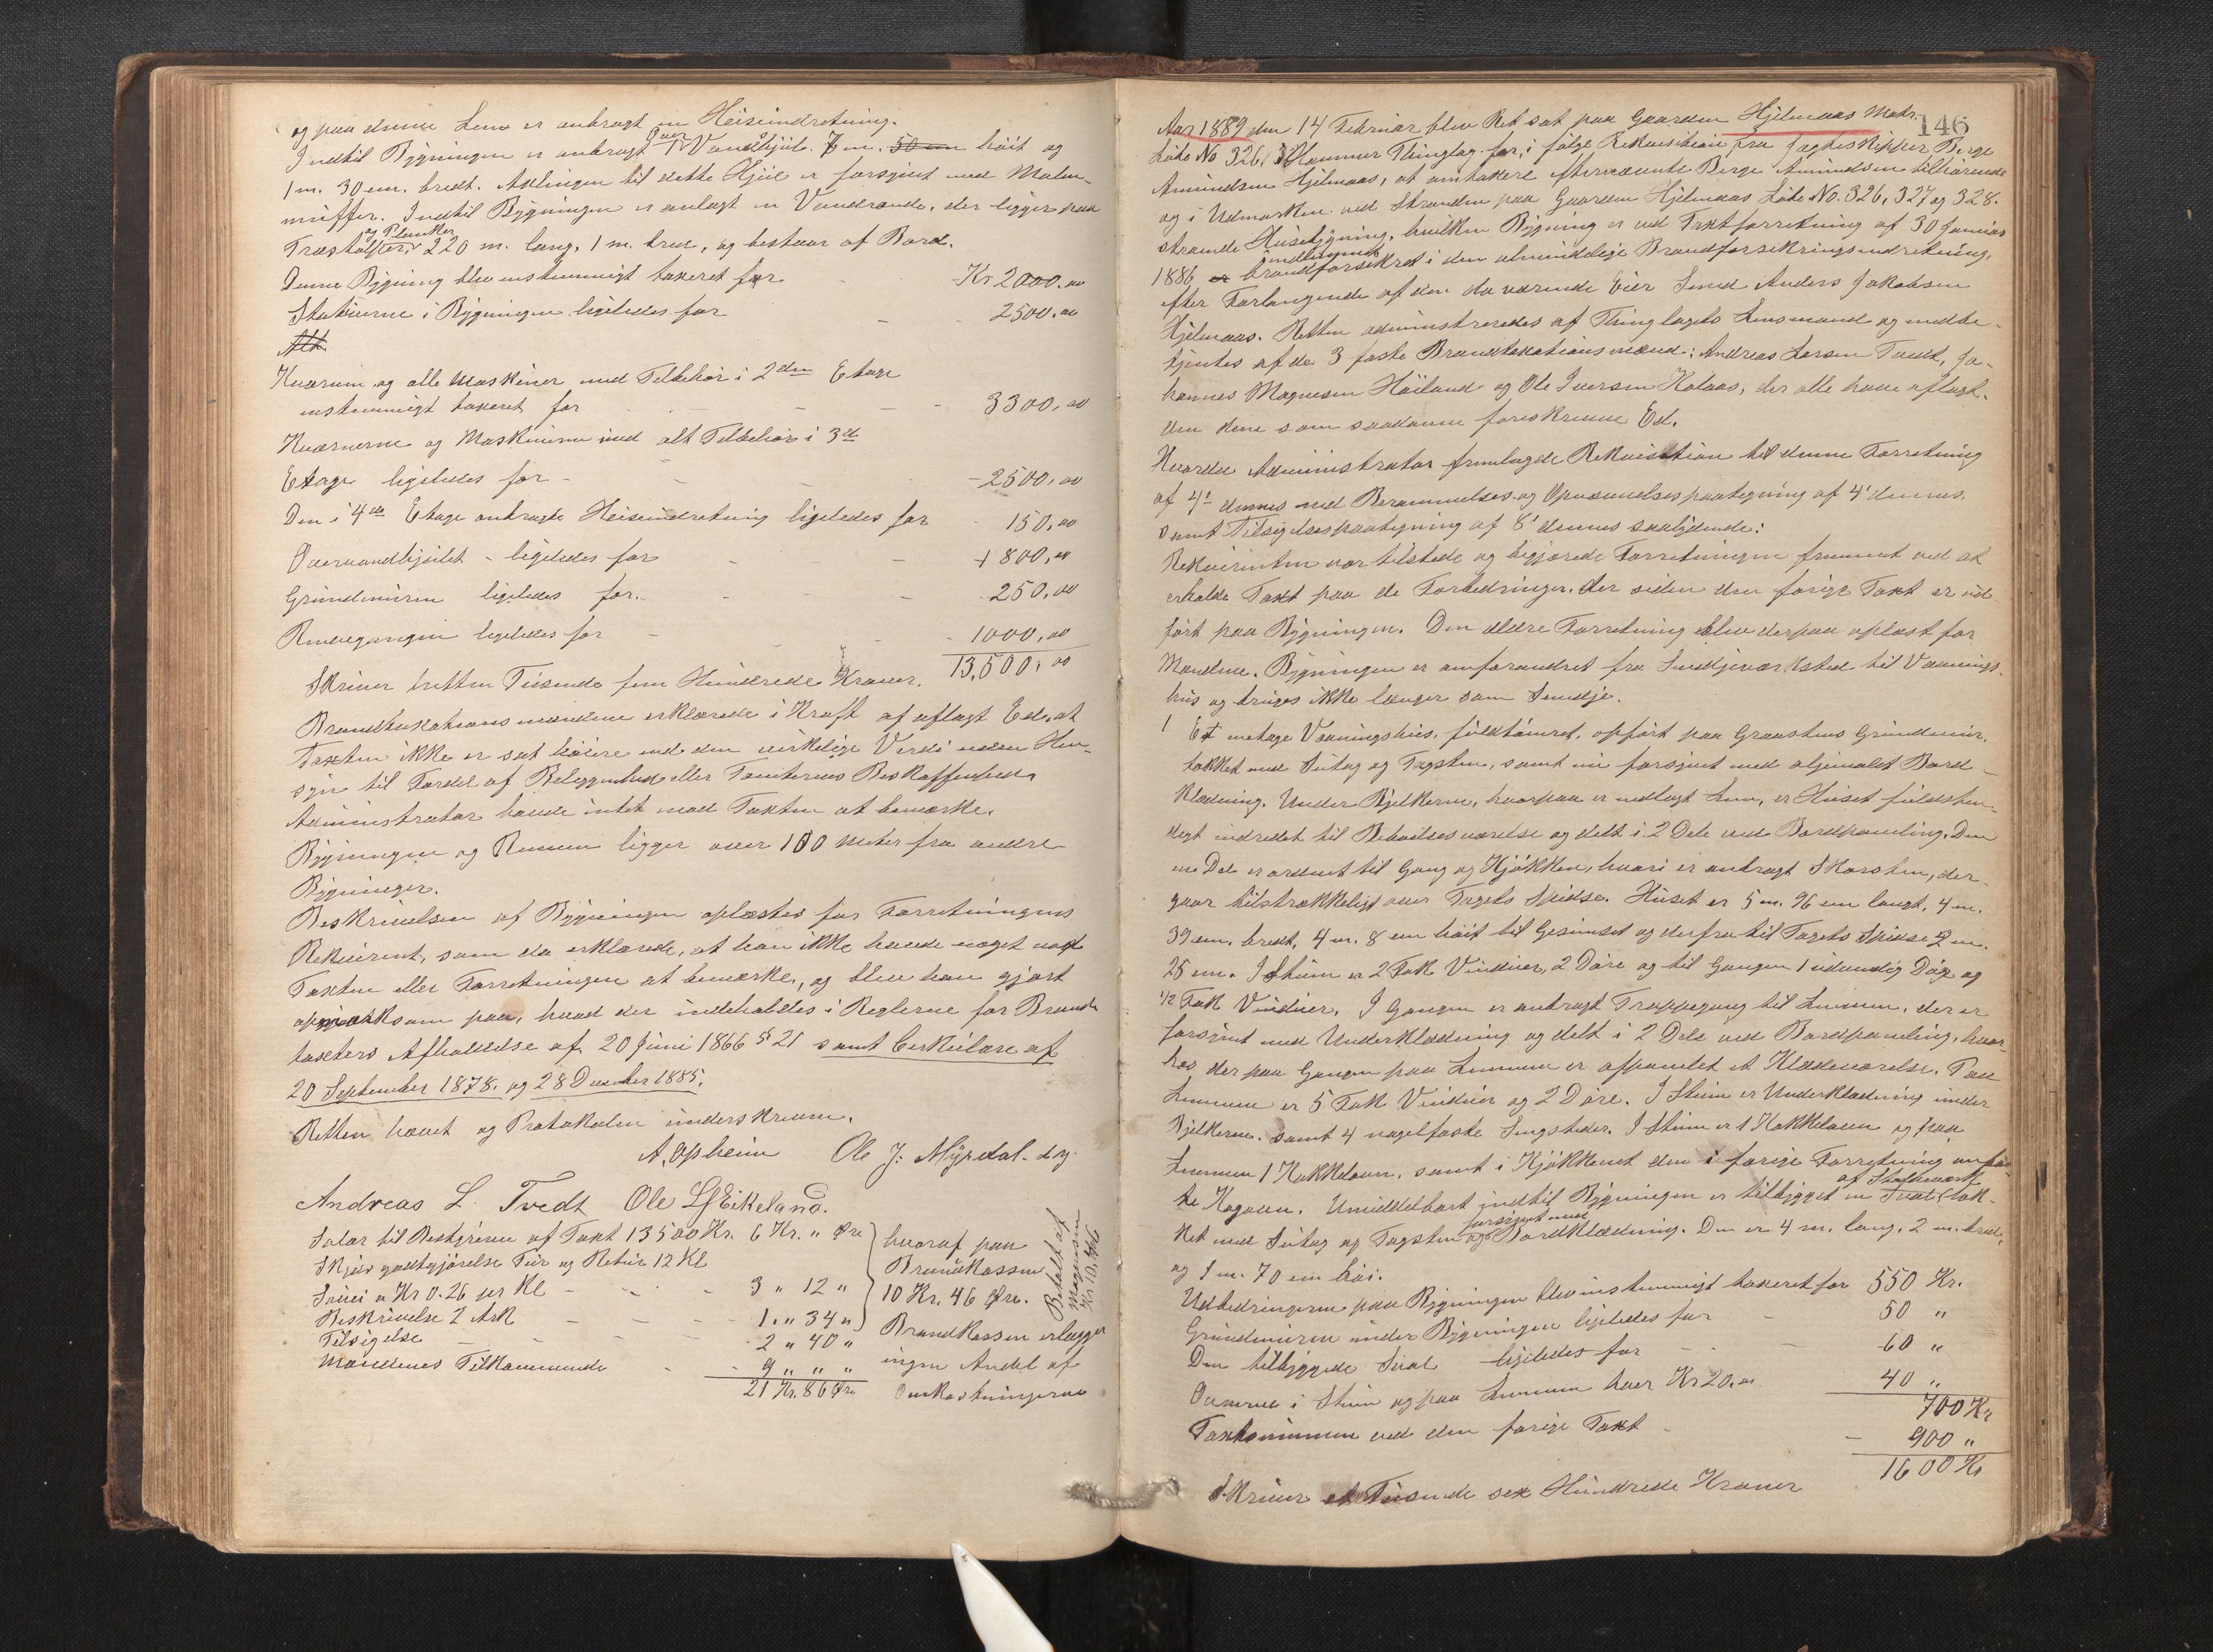 og paa denne Lem er anbragt en Heiseindretning.
Indtil Bygningen er anbragt 1 Over Vandhjul. 7 m. 50 cm høit og
1 m. 30 cm. bredt. Axlingen til dette Hjul er forsynet med Malm-
muffer. Indtil Bygningen er anlagt en Vandrende, der ligger paa
Træstolper, 220 m. lang, 1 m. bred, og bestaar af Bord
og Planker.
Denne Bygning blev enstemmigt taxeret for - Kr 2000.00
Stolerne i Bygningen ligeledes for - - 2500.00
Alt
Kværnen og alle Maskiner med Tilbehør i 2den Etage
enstemmigt taxeret for - - - 3300,00
Kværnerne og Maskinerne med alt Tilbehør i 3de
Etage ligeledes for - - - 2500,00
Den i 4de Etage anbragte Heiseindretning ligeledes for 150,00
Overvandhjulet - ligeledes for - - 1800,00
Grundmuren ligeledes for. - - 250,00
Rendegangen ligeledes for - - 1000,00
13,500,00
Skriver tretten Tusende fem Hundrede Kroner.
Brandtaxationsmændene erklærede i Kraft af aflagt Ed, at
Taxten ikke er sat høiere end den virkelige Værdi uden Hen-
syn til Fordel af Beliggenhed eller Tomternes Beskaffenhed.
Administrator havde intet mod Taxten at bemærke.
Bygningen og Renden ligger over 100 Meter fra andre
Bygninger.
Beskrivelsen af Bygningen oplæstes for Forretningens
Rekvirent, som da erklærede, at han ikke havde noget mod
Taxten eller Forretningen at bemærke, og blev han gjort
opmærksom paa, hvad der indeholdes i Reglerne for Brand-
taxters Afholdelse af 20 Juni 1866 § 21 samt Cirkulære af
20 September 1878. og 28 December 1885.
Retten hævet og Protokolen underskreven.
A. Opheim Ole J. Myrdal. d.y.
Andreas L. Tvedt Ole L. Eikeland.
Salær til Bestyreren af Taxt 13500 Kr. 6 Kr. " Øre
Skydsgodtgjørelse Tur og Retur 12 Kl
Søvei a Kr 0.26 per Kl - - - 3 " 12 "
Beskrivelse 2 Ark - - - 1 " 34 "
Tilsigelse - - - 2 " 40 "
Mændenes Tilkommende - - 9 " " "
21 Kr. 86 Øre
hvoraf paa
Brandkassen
10 Kr. 46 Øre.
Brandkassen erlægger
ingen Andel af
Omkostningerne
Betalt af
Magnesen
Kr 10,46
146
Aar 1889 den 14 Februar blev Ret sat paa Gaarden Hjelmaas Matr.
Løbe No 326, i Hammer Thinglag for, i følge Rekvisition fra Jagteskipper Børge
Amundsen Hjelmaas, at omtaxere efternævnte Børge Amundsen tilhørende
og i Udmarken ved Stranden paa Gaarden Hjelmaas Løbe No. 326, 327 og 328.
staaende Husebygning, hvilken Bygning er ved Taxtforretning af 30 Januar
1886 er indtegnet brandforsikret i den almindelige Brandforsikringsindretning,
efter Forlangende af den da værende Eier Smed Anders Jakobsen
Hjelmaas. Retten administreredes af Thinglagets Lensmand og medbe-
tjentes af de 3 faste Brandtaxationsmænd: Andreas Larsen Tvedt, Jo-
hannes Magnesen Høiland og Ole Iversen Kolaas, der alle have aflagt
den dem som saadanne foreskrevne Ed.
Hvorda Administrator fremlagde Rekvisition til denne Forretning
af 4de dennes med Berammelses- og Opnævnelsespaategning af 4' dennes.
samt Tilsigelsespaategning af 8' dennes saalydende:
Rekvirenten var tilstede og begjærede Forretningen fremmet ved at
erholde Taxt paa de Forbedringer, der siden den forige Taxt er ud-
ført paa Bygningen. Den ældre Forretning blev derpaa oplæst for
Mændene. Bygningen er omforandret fra Smedjeværksted til Vaanings-
hus og bruges ikke længer som Smedje.
1 Et en etage Vaaningshus, fuldtømret, opført paa Graastens Grundmur,
takket med Sutag og Tagsten, samt nu forsynet med oljemalet Bord-
klædning. Under Bjelkerne, hvorpaa er nedlagt Lem, er Huset fuldsten-
digt indredet til Beboelsesværelse og delt i 2 Dele ved Bordpanling. Den
ene Del er ordnet til Gang og Kjøkken, hvori er anbragt Skorsten, der
gaar tilstrækkeligt over Tagets Spidse. Huset er 5 m. 96 cm langt, 4 m.
39 cm. bredt, 4 m. 8 cm høit til Gesimset og derfra til Tagets Spidse 2 m.
25 cm. I Stuen er 2 Fak Vinduer, 2 Døre og til Gangen 1 udvendig Dør og
1/2 Fak Vinduer. I Gangen er anbragt Trappegang til Lemmen, der er
forsynet med Underklædning og delt i 2 Dele ved Bordpanling, hvor-
hos der paa Gangen paa Lemmen er afpanlet et Klædeværelse. Paa
Lemmen er 5 Fak Vinduer og 2 Døre. I Stuen er Underklædning under
Bjelkerne. samt 4 nagelfaste Sengsteder. I Stuen er 1 Kakkelovn og paa
Lemmen 1 Kakkelovn, samt i Kjøkkenet den i forige Forretning anfør-
te Kogovn. Umiddelbart indtil Bygningen er tilbygget en Sval af Stolpeværk, tak-
ket med Sutag og Tagsten og forsynet med Bordklædning. Den er 4 m. lang, 2 m. bred,
og 1 m. 70 cm høi.
Udbedringerne paa Bygningen blev enstemmigt taxeret for 550 Kr.
Grundmuren under Bygningen ligeledes for - 50 "
Den tilbyggede Sval ligeledes for - - 60 "
Ovnene i Stuen og paa Lemmen hver Kr 20,00 40 "
700 Kr
Taxtsummen ved den forige Taxt - - 900 "
1600 Kr
Skriver et Tusende sex Hundrede Kroner